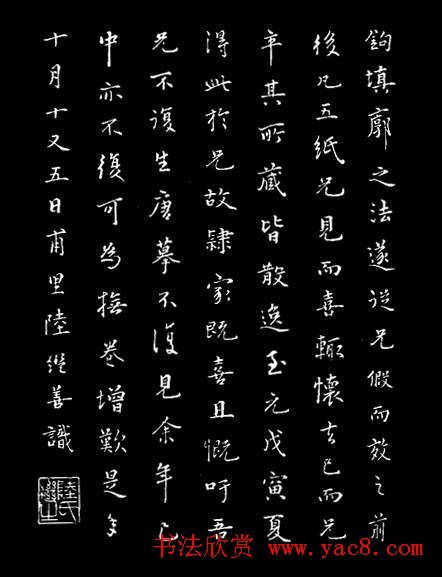 鉤填廓之法遂從兄假而效之前
後凡五紙兄見而喜輒懷去已而兄
卒其所藏皆散逸至元戊寅夏
得此於兄故隸家既喜且慨吁吾
兄不復生唐摹不復見余年已
中亦不復可為撫卷增歎是歲
十月十又五日甫里陸繼善識
书法欣赏 www.yac8.com